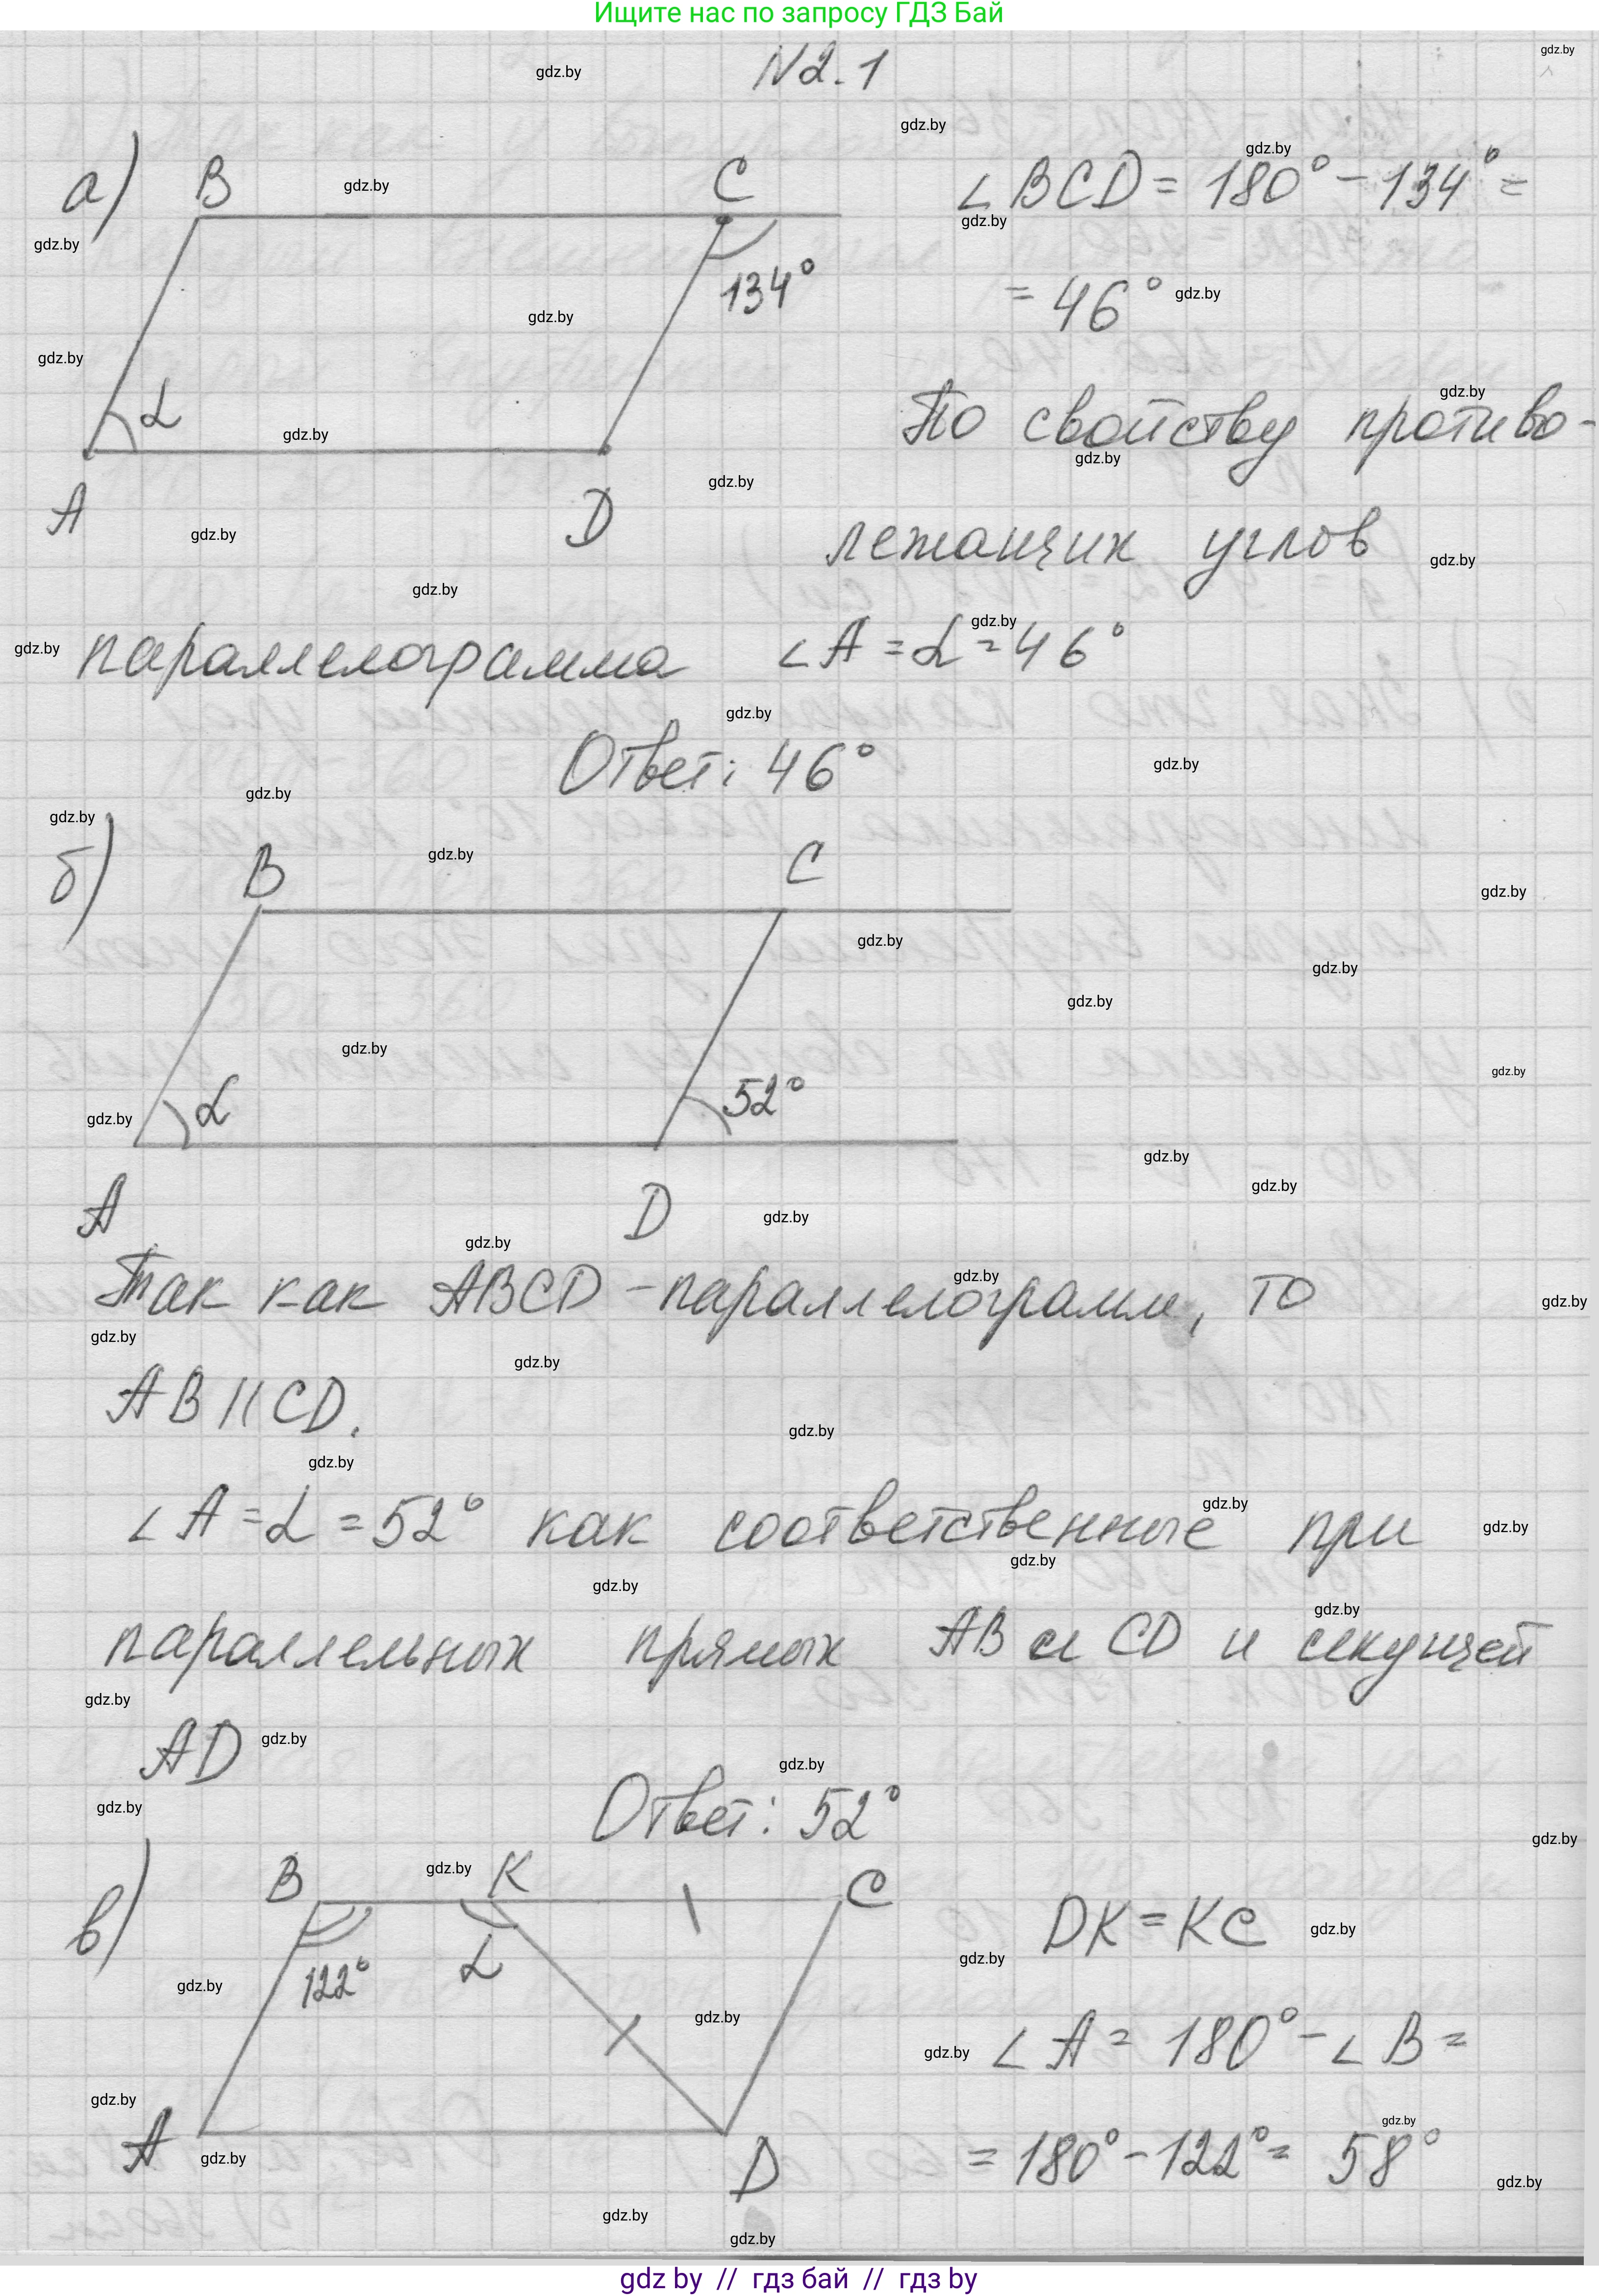 Ищите нас по запросу ГДЗ Бай
N 2.1
а)
B
C
134°
α
A
D
∠BCD = 180° - 134° =
= 46°
По свойству противо-
лежащих углов
параллелограмма ∠A = α = 46°
Ответ: 46°
б)
B
C
α
52°
A
D
Так как ABCD - параллелограмм, то
AB || CD.
∠A = α = 52° как соответственные при
параллельных прямых AB и CD и секущей
AD
Ответ: 52°
в)
B
K
C
122°
α
A
D
DK = KC
∠A = 180° - ∠B =
= 180° - 122° = 58°
gdz.by
gdz by // гдз бай // гдз by